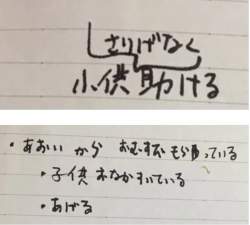 さりげなく
小供 助ける
・あおい から おむすび もらっている
・子供 おなかすいている
・あげる